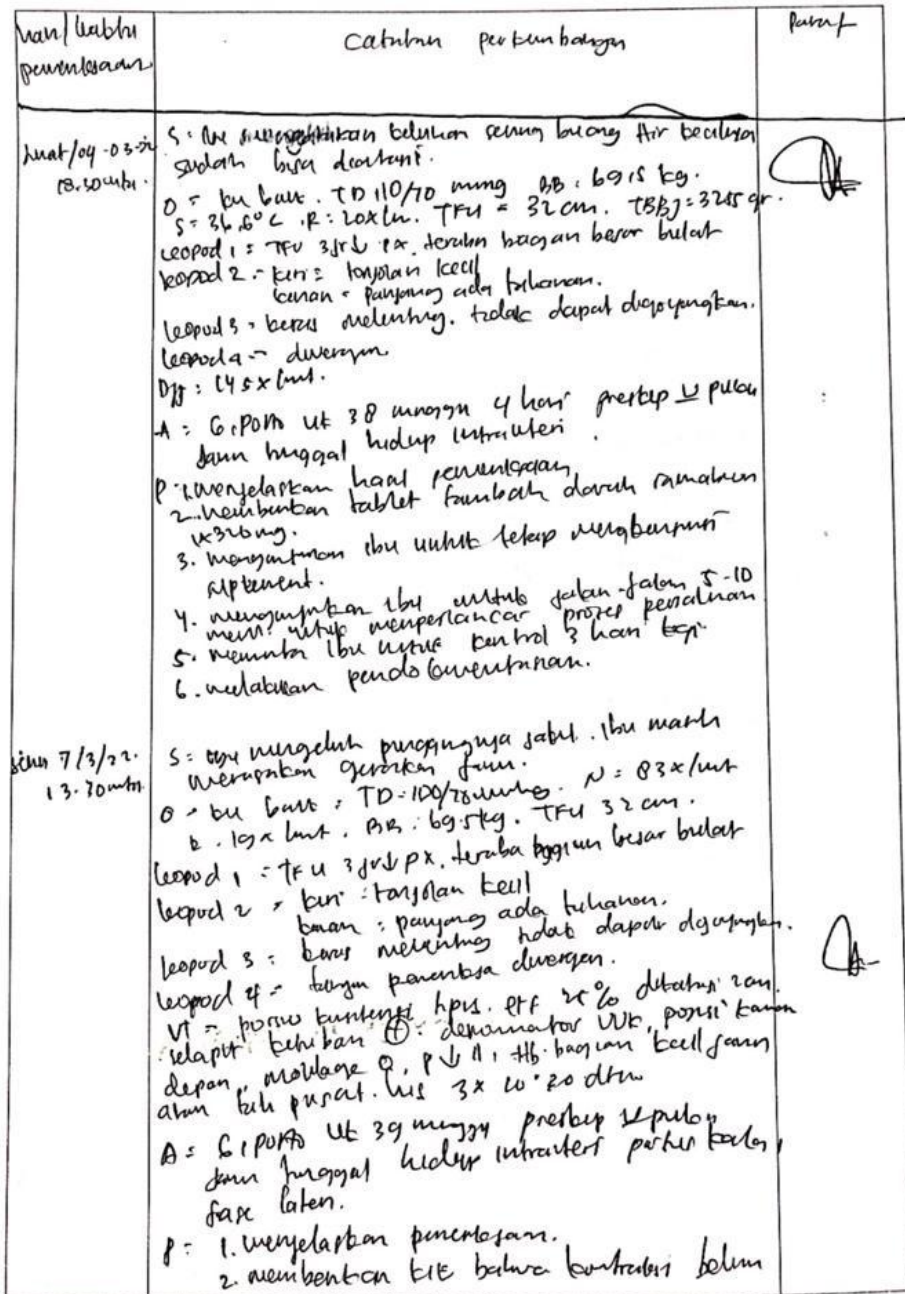 hari/waktu
pemeriksaan
catatan perkembangan
Paraf
04-03-22
18.30 wib.
S: Ibu mengatakan keluhan sering buang Air kecilnya
sudah bisa diatasi.
O = ku baik. TD 110/70 mmhg BB: 69,5 kg.
S = 36,6°C. R: 20x/m. TFU = 32 cm. TBBJ = 3255 gr.
Leopod 1 = TFU 3jr↓ px. teraba bagian besar bulat
Leopod 2 = kiri = tonjolan kecil
kanan = panjang ada tahanan.
Leopod 3 = keras melenting. tidak dapat digoyangkan.
Leopod 4 = divergen
Djj: 145x/mnt.
A = G1P0A0 uk 38 minggu 4 hari preskep U pukau
janin tunggal hidup intrauteri
P: 1. menjelaskan hasil pemeriksaan
2. memberikan tablet tambah darah
1x320mg.
3. menganjurkan ibu untuk tetap mengkonsumsi
suplement.
4. menganjurkan ibu untuk jalan-jalan 5-10
menit untuk memperlancar proses persalinan
5. meminta ibu untuk kontrol 3 hari lagi
6. melakukan pendokumentasian.
senin 7/3/22.
13.30 wib.
S = ibu mengeluh punggungnya sakit. Ibu masih
merasakan gerakan janin.
O = ku baik = TD = 100/70 mmhg. N = 83x/mnt
R. 19x/mnt. BB: 69.5kg. TFU 32 cm.
Leopod 1 = TFU 3jr↓ px. teraba bagian besar bulat
Leopod 2 = kiri = tonjolan kecil
kanan = panjang ada tahanan.
Leopod 3 = keras melenting tidak dapat digoyangkan.
Leopod 4 = tangan pemeriksa divergen.
VT = porsio konsistensi tipis. eff 25% 2cm.
selaput ketuban ⊕. denominator UUK, posisi kanan
depan, moulage 0, p↓ H1, ttb. bagian kecil janin
atau tali pusat. his 3x10'20 dtk
A = G1P0A0 uk 39 minggu preskep U pukau
janin tunggal hidup intrauteri partus kala 1
fase laten.
P = 1. menjelaskan pemeriksaan.
2. memberikan KIE bahwa kontraksi belum